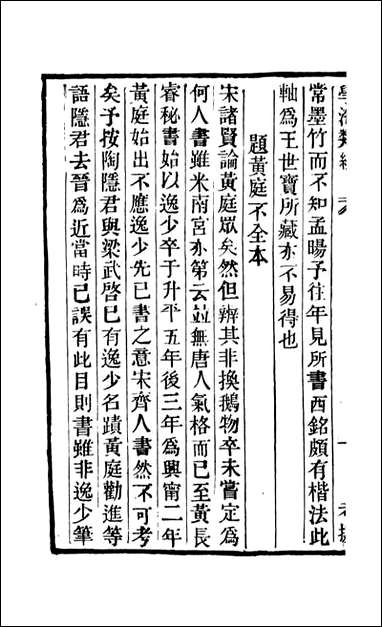 學海類編
常墨竹而不知孟暘予往年見所書西銘頗有楷法此
軸爲王世寶所藏亦不易得也
題黃庭不全本
宋諸賢論黃庭眾矣然但辨其非換鵝物卒未嘗定爲
何人書雖米南宮亦第云並無唐人氣格而已至黃長
睿秘書始以逸少卒于升平五年後三年爲興甯二年
黃庭始出不應逸少先已書之意宋齊人書然不可考
矣予按陶隱君與梁武啓已有逸少名蹟黃庭勸進等
語隱君去晉爲近當時已誤有此目則書雖非逸少筆